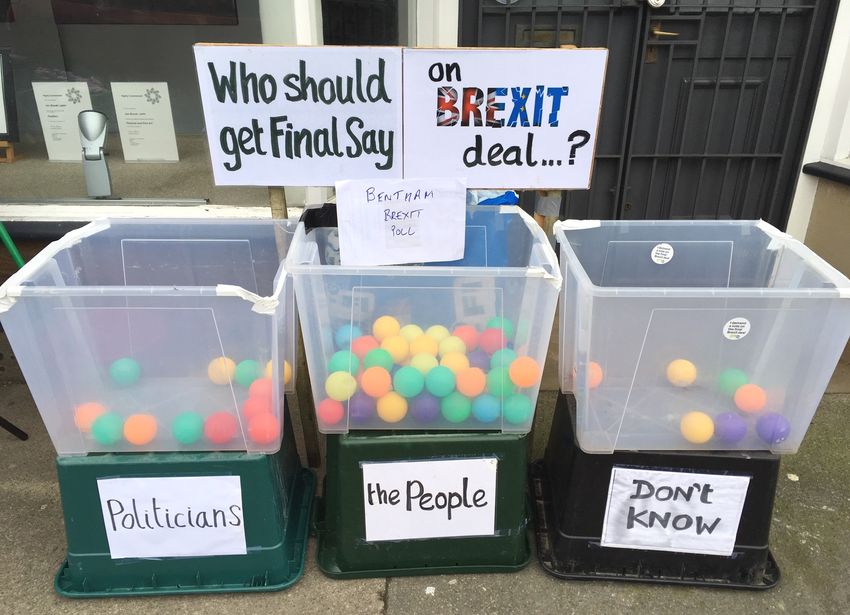 Who should
get Final Say
on
BREXIT
deal...?
BENTHAM
BREXIT
POLL
Politicians
the People
DON'T
KNOW